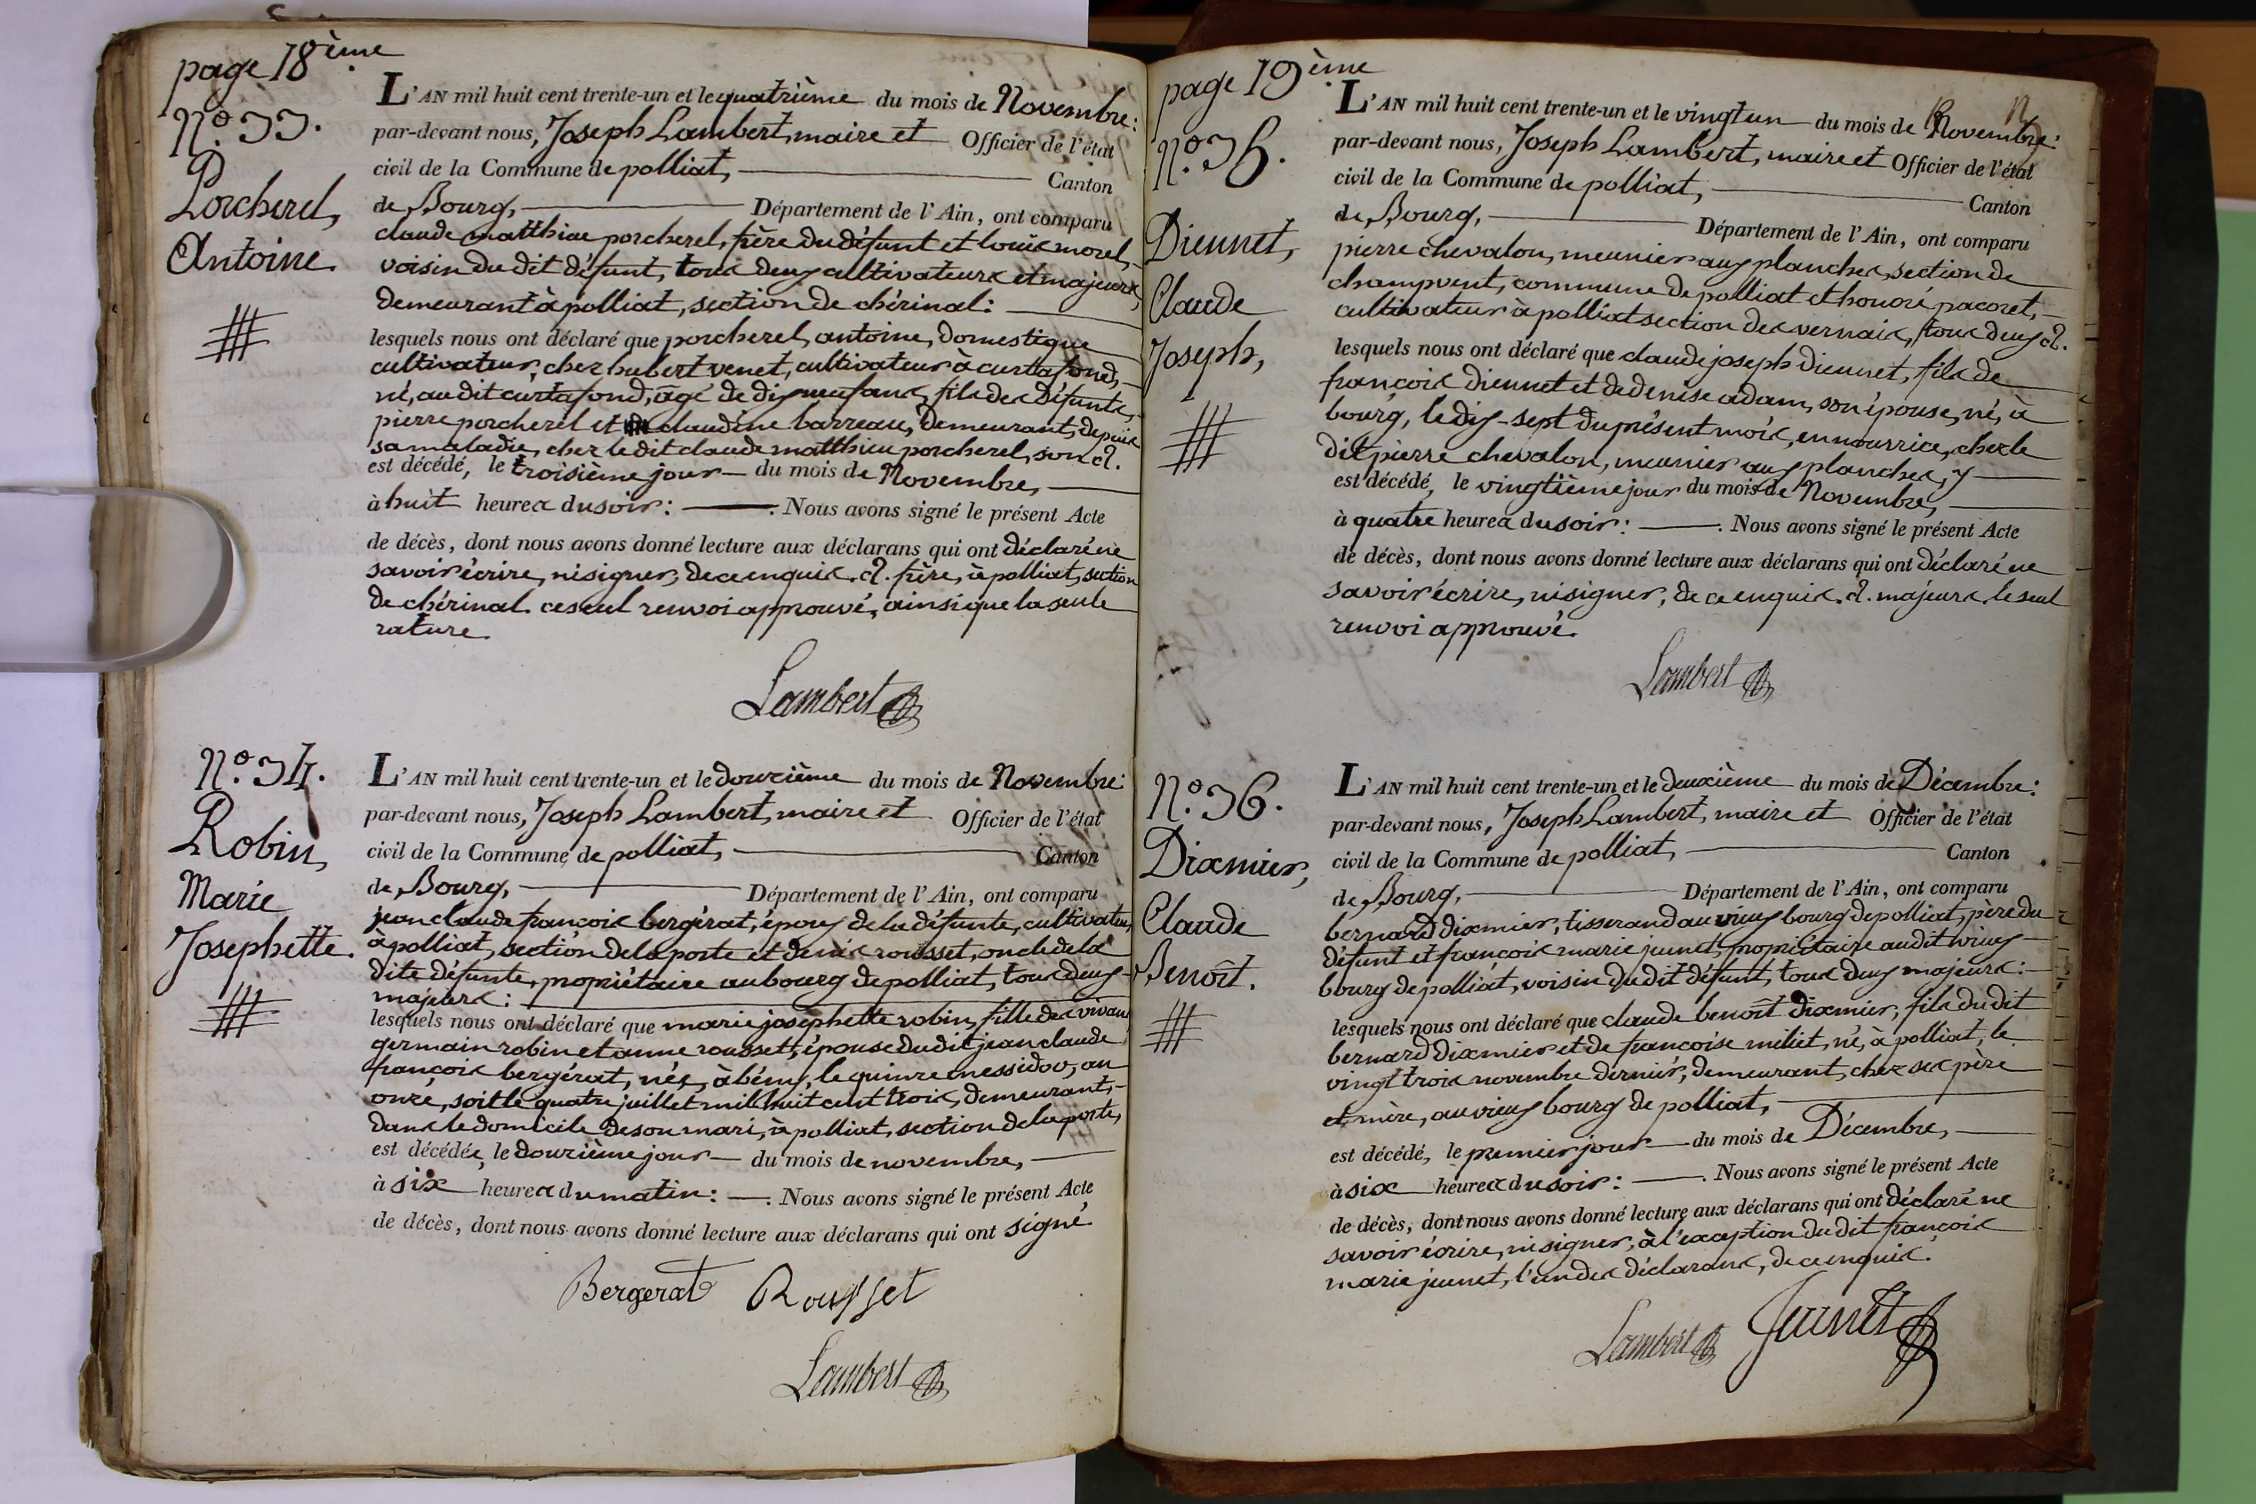 page 18ème
N.o 33.
Porcherel,
Antoine.
L'AN mil huit cent trente-un et le quatrième du mois de Novembre:
par-devant nous, Joseph Lambert, maire et Officier de l'état
civil de la Commune de polliat, Canton
de Bourg, Département de l'Ain, ont comparu
claude matthieu porcherel, frère du défunt et louis morel,
voisin du dit défunt, tous deux cultivateurs et majeurs,
demeurant à polliat, section de chérinal:
lesquels nous ont déclaré que porcherel, antoine, domestique
cultivateur, chez hubert venet, cultivateur à curtafond,
né, au dit curtafond, âgé de dix neuf ans, fils des défunts,
pierre porcherel et claudine barreau, demeurant, depuis
sa maladie, chez le dit claude matthieu porcherel, son
est décédé, le troisième jour du mois de Novembre,
à huit heures du soir: . Nous avons signé le présent Acte
de décès, dont nous avons donné lecture aux déclarans qui ont déclaré ne
savoir écrire, ni signer, de ce enquis. frère, à polliat, section
de chérinal. ce seul renvoi approuvé, ainsi que la seule
rature.
Lambert
N.o 34.
Robin,
Marie
Josephette.
L'AN mil huit cent trente-un et le douzième du mois de Novembre:
par-devant nous, Joseph Lambert, maire et Officier de l'état
civil de la Commune de polliat, Canton
de Bourg, Département de l'Ain, ont comparu
jean claude françois bergérat, époux de la défunte, cultivateur
à polliat, section de la poste et denis rousset, oncle de la
dite défunte, propriétaire au bourg de polliat, tous deux
majeurs:
lesquels nous ont déclaré que marie josephette robin, fille des vivans
germain robin et anne rousset, épouse du dit jean claude
françois bergérat, née, à bény, le quinze messidor, an
onze, soit le quatre juillet mil huit cent trois, demeurant,
dans le domicile de son mari, à polliat, section de la poste,
est décédée, le douzième jour du mois de novembre,
à six heures du matin: . Nous avons signé le présent Acte
de décès, dont nous avons donné lecture aux déclarans qui ont signé
Bergerat Rousset
Lambert
page 19ème
N.o 35.
Diennet,
Claude
Joseph,
L'AN mil huit cent trente-un et le vingt un du mois de Novembre:
par-devant nous, Joseph Lambert, maire et Officier de l'état
civil de la Commune de polliat, Canton
de Bourg, Département de l'Ain, ont comparu
pierre chevalon, meunier aux planches, section de
champvent, commune de polliat et honoré pacoret,
cultivateur à polliat section des vernais, tous deux
lesquels nous ont déclaré que claude joseph diennet, fils de
françois diennet et de denise adam, son épouse, né, à
bourg, le dix-sept du présent mois, en nourrice, chez le
dit pierre chevalon, meunier aux planches, y
est décédé, le vingtième jour du mois de Novembre,
à quatre heures du soir: . Nous avons signé le présent Acte
de décès, dont nous avons donné lecture aux déclarans qui ont déclaré ne
savoir écrire, ni signer, de ce enquis. majeurs. le seul
renvoi approuvé.
Lambert
N.o 36.
Dixmier,
Claude
Benoît.
L'AN mil huit cent trente-un et le deuxième du mois de Décembre:
par-devant nous, Joseph Lambert, maire et Officier de l'état
civil de la Commune de polliat, Canton
de Bourg, Département de l'Ain, ont comparu
bernard dixmier, tisserand au vieux bourg de polliat, père du
défunt et françois marie jeunet, propriétaire au dit vieux
bourg de polliat, voisin du dit défunt, tous deux majeurs:
lesquels nous ont déclaré que claude benoît dixmier, fils du dit
bernard dixmier et de françoise miliet, né, à polliat, le
vingt trois novembre dernier, demeurant, chez ses père
et mère, au vieux bourg de polliat,
est décédé, le premier jour du mois de Décembre,
à six heures du soir: . Nous avons signé le présent Acte
de décès, dont nous avons donné lecture aux déclarans qui ont déclaré ne
savoir écrire, ni signer, à l'exception du dit françois
marie jeunet, l'un des déclarans, de ce enquis.
Lambert Jeunet